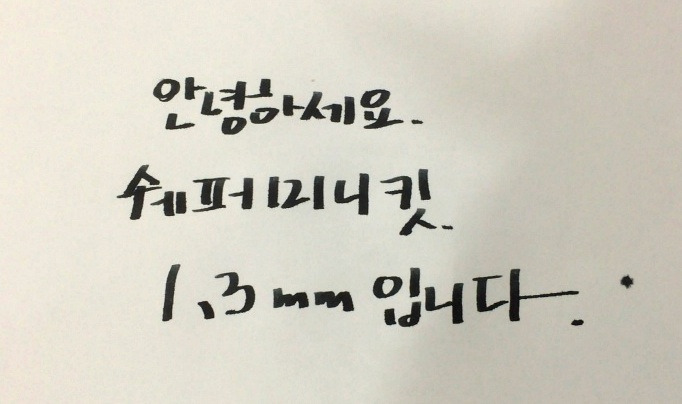 안녕하세요.
쉐퍼미니킷.
1.3mm 입니다.